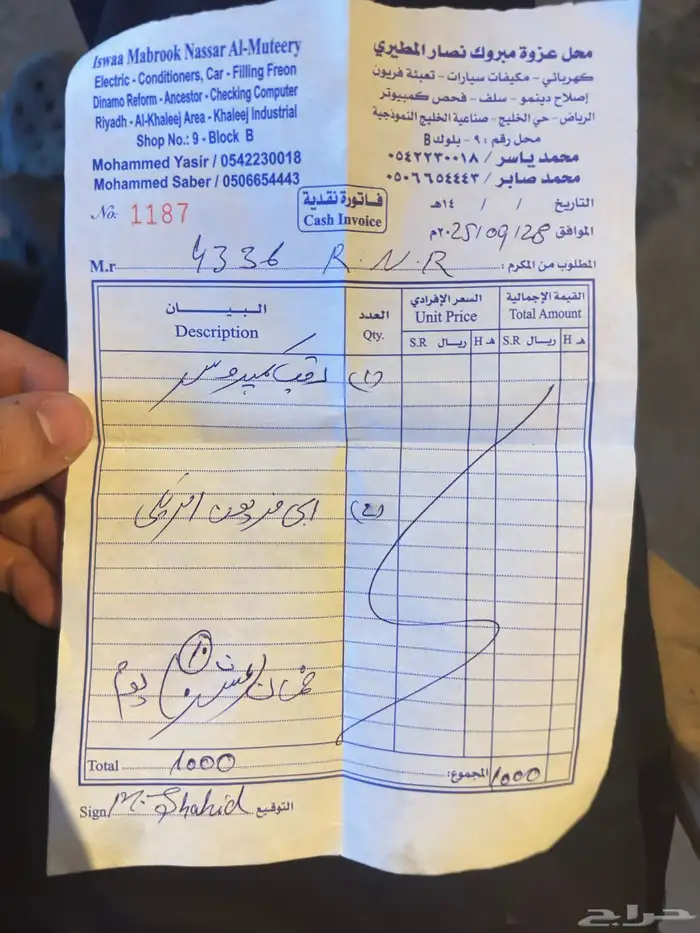 Iswaa Mabrook Nassar Al-Muteery
Electric - Conditioners, Car - Filling Freon
Dinamo Reform - Ancestor - Checking Computer
Riyadh - Al-Khaleej Area - Khaleej Industrial
Shop No.: 9 - Block B
Mohammed Yasir / 0542230018
Mohammed Saber / 0506654443
محل عزوة مبروك نصار المطيري
كهربائي - مكيفات سيارات - تعبئة فريون
إصلاح دينمو - سلف - فحص كمبيوتر
الرياض - حي الخليج - صناعية الخليج النموذجية
محل رقم : ٩ - بلوك B
محمد ياسر / ٠٥٤٢٢٣٠٠١٨
محمد صابر / ٠٥٠٦٦٥٤٤٤٣
No. 1187
فاتورة نقدية
Cash Invoice
التاريخ / / ١٤هـ
الموافق 2025/09/28م
M.r 4336 R.N.R المطلوب من المكرم :
البـــيـــان العدد السعر الإفرادي القيمة الإجمالية
Description Qty. Unit Price Total Amount
S.R ريـال H هـ S.R ريـال H هـ
(١)
ضمان يوم
Total 1000 المجموع: 1000
Sign M. Shahid التوقيع
حراج